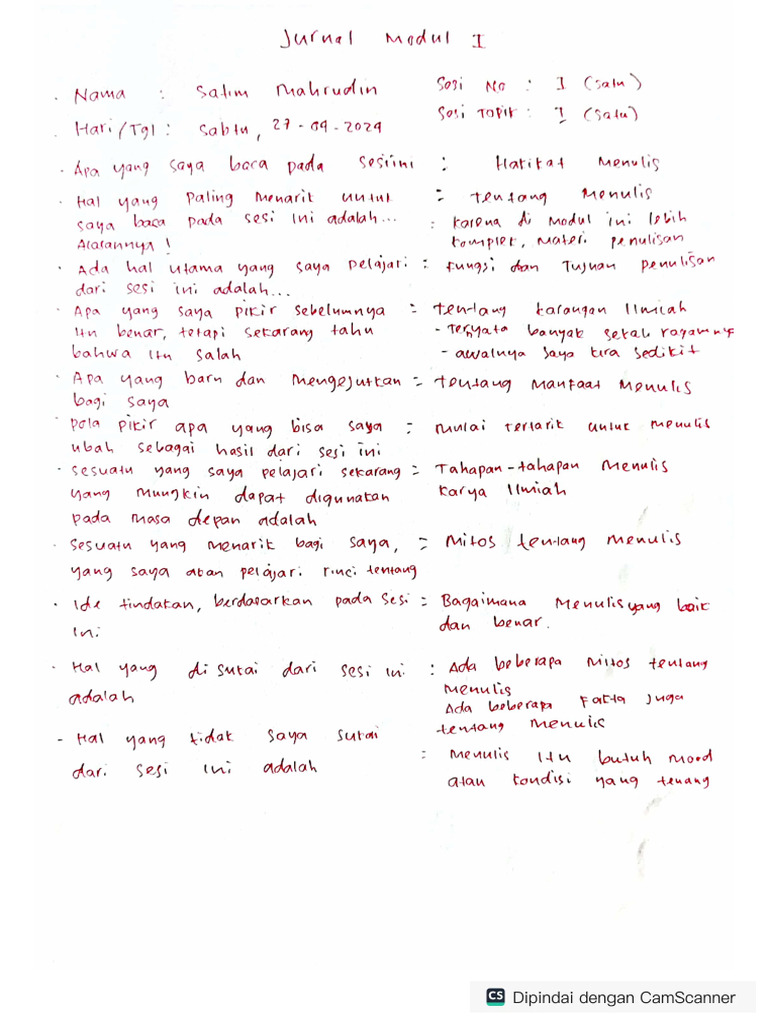 Jurnal Modul I
. Nama : Satim Mahrudin
Sesi No : I (satu)
. Hari/Tgl : Sabtu, 27-04-2024
Sesi Topik : I (Satu)
. Apa yang saya baca pada sesiini : Hakikat Menulis
. Hal yang Paling Menarik untuk = tentang Menulis
saya baca pada sesi ini adalah... : Karena di Modul ini lebih
Alasannya ! komplet, Materi penulisan
. Ada hal utama yang saya pelajari = fungsi dan Tujuan penulisan
dari sesi ini adalah...
. Apa yang saya pikir sebelumnya = tentang karangan Ilmiah
Itu benar, tetapi sekarang tahu - Ternyata banyak sekali ragamnya
bahwa Itu salah - awalnya saya kira sedikit
. Apa yang baru dan Mengejutkan = tentang Manfaat Menulis
bagi saya
. pola pikir apa yang bisa saya = mulai tertarik untuk menulis
ubah sebagai hasil dari sesi ini
. sesuatu yang saya pelajari sekarang = Tahapan-tahapan Menulis
yang Mungkin dapat digunakan karya Ilmiah
pada masa depan adalah
. Sesuatu yang menarik bagi saya, = Mitos tentang Menulis
yang saya akan pelajari rinci tentang
. Ide tindakan, berdasarkan pada sesi = Bagaimana Menulis yang baik
Ini dan benar.
. Hal yang di sukai dari sesi ini : Ada beberapa Mitos tentang
adalah Menulis
Ada beberapa Fakta Juga
tentang Menulis
- Hal yang tidak saya sukai
dari sesi Ini adalah : Menulis Itu butuh Mood
atau kondisi yang tenang
CS Dipindai dengan CamScanner